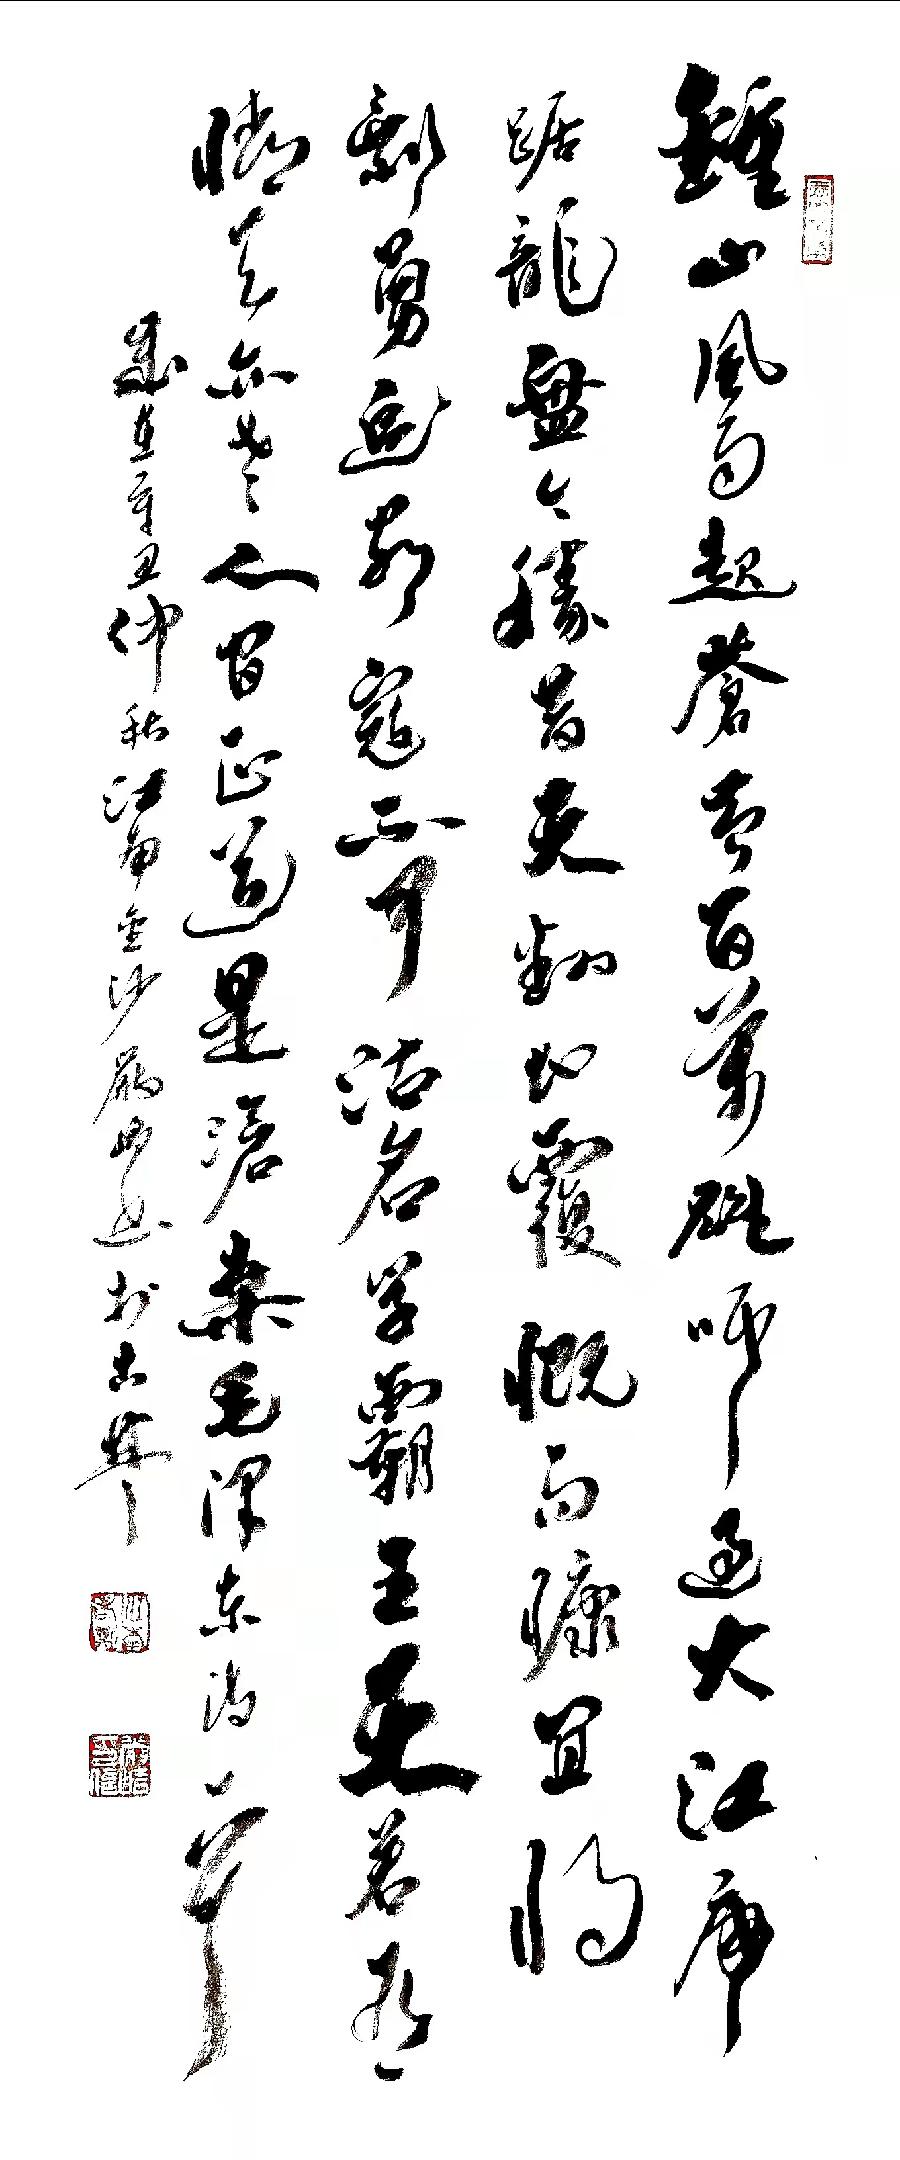 鍾山風雨起蒼黄百萬雄师过大江虎
踞龍盤今勝昔天翻地覆慨而慷宜将
剩勇追窮寇不可沽名学霸王天若有
情天亦老人間正道是滄桑毛澤东诗一首
歲在辛丑仲秋江南金沙嚴书於古